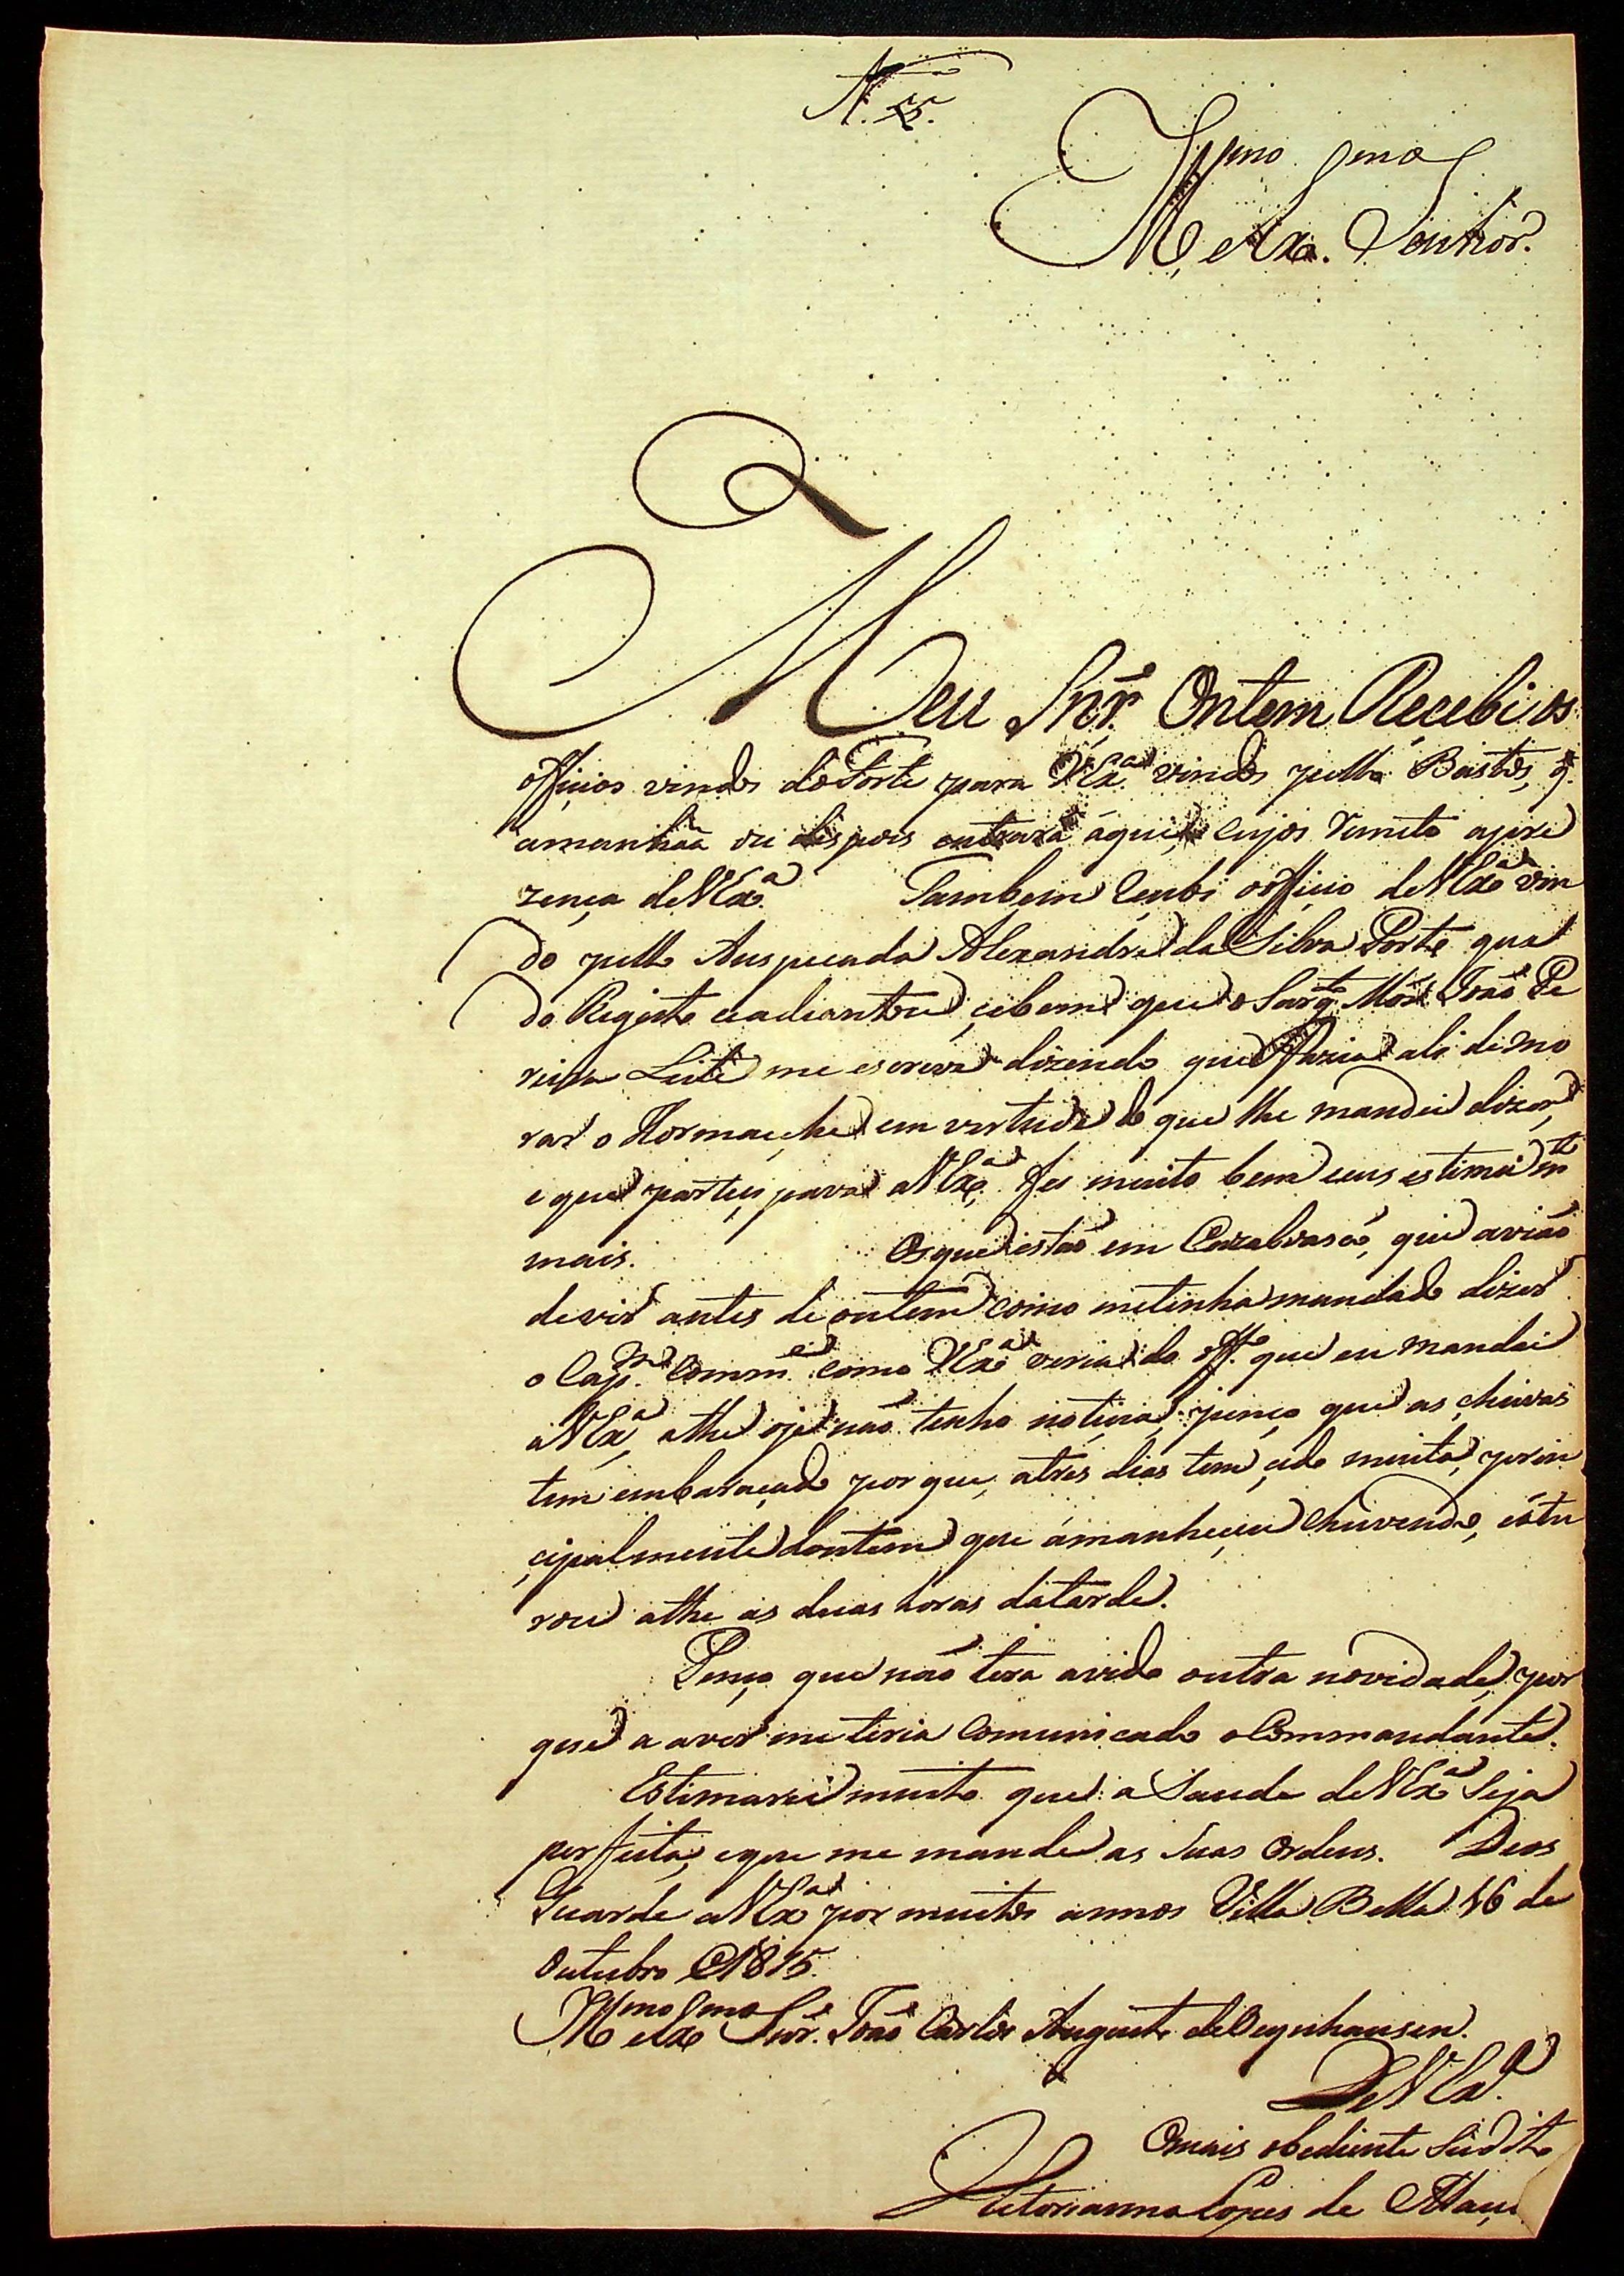 N. 55.
Illmo e Exmo Senhor.
Meu Snr. Ontem Recebi os
officios vindos do Forte para VExa. vindos pello Bastos, q.
amanhãa ou dispois entrará áqui, cujos remeto apre
zença de VExa. Tambem recebi o officio de VExa vin
do pello Anspecada Alexandre da Silva Porte qua
do Registo ... adiantou, cebem que o Sargto. Mór João Pe
reira Leite me escreva dizendo que o fazia ali demo
rar o ... em virtude do que lhe mandei dizer,
e que partiu para VExa. fes muito bem eeu o estimei mto
mais. Os que estão em Cazalvasco, que avião
devir antes de ontem como metinha mandado dizer
o Capm. Comme. como VExa veria do offo. que eu mandei
a VExa, athe oje não tenho notiçia; penço que as chuvas
tem embaraçado por que, atres dias tem çido muita, prin
çipalmente dontem que ámanheçeu chuvendo, é atu
rou athe as duas horas datarde.
Penço que não tera avido outra novidade, por
que a aver me teria Comunicado o Commandante.
Estimarei muito que a Saude de VExa Seja
perfeita, eque me mande as Suas Ordens. Deos
Guarde a VExa por muitos annos Villa Bella 16 de
Outubro de 1815.
Illmo e Exmo Snr. João Carlos Augusto de Oeynhausen.
De VExa.
Omais obediente Sudito
Victorianno Lopes de